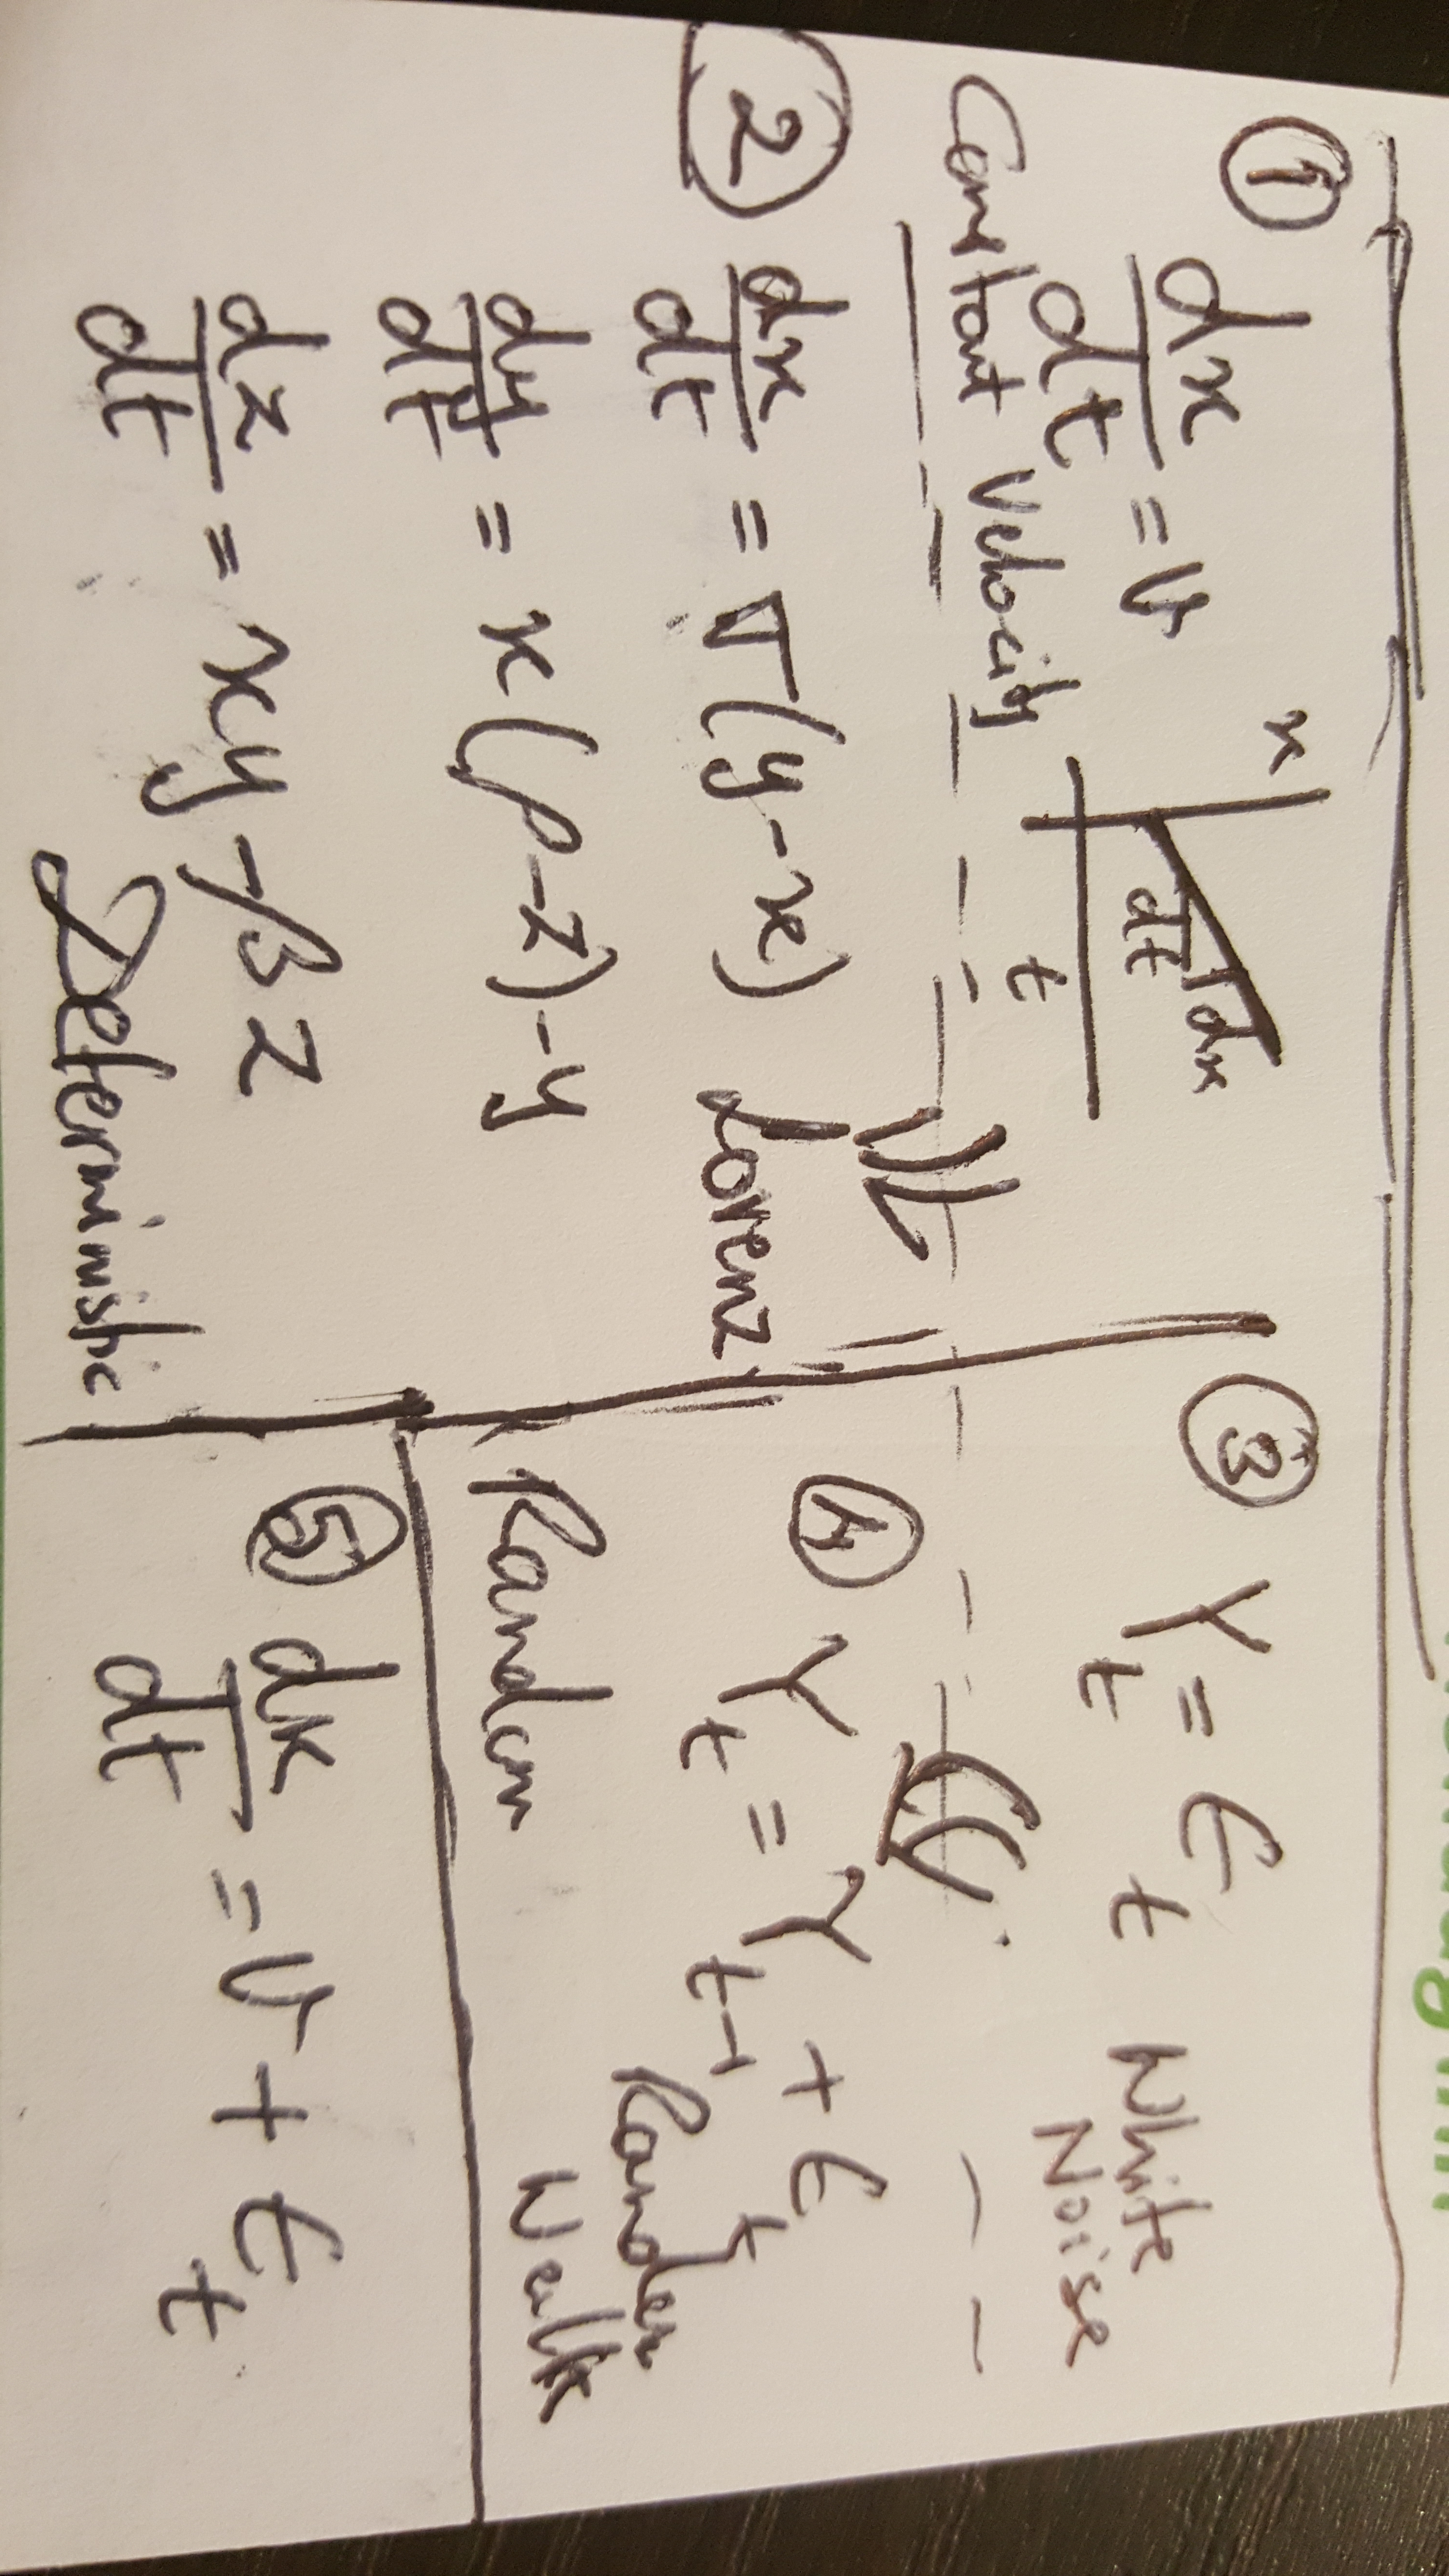 ① dx/dt = v
x
dx
dt
t
Constant Velocity
② dx/dt = σ(y-x) Lorenz
dy/dt = x(ρ-z)-y
dz/dt = xy-βz
Deterministic
③ Y_t = ε_t White
Noise
④ Y_t = Y_t-1 + ε_t
Random
Walk
Random
⑤ dx/dt = v + ε_t